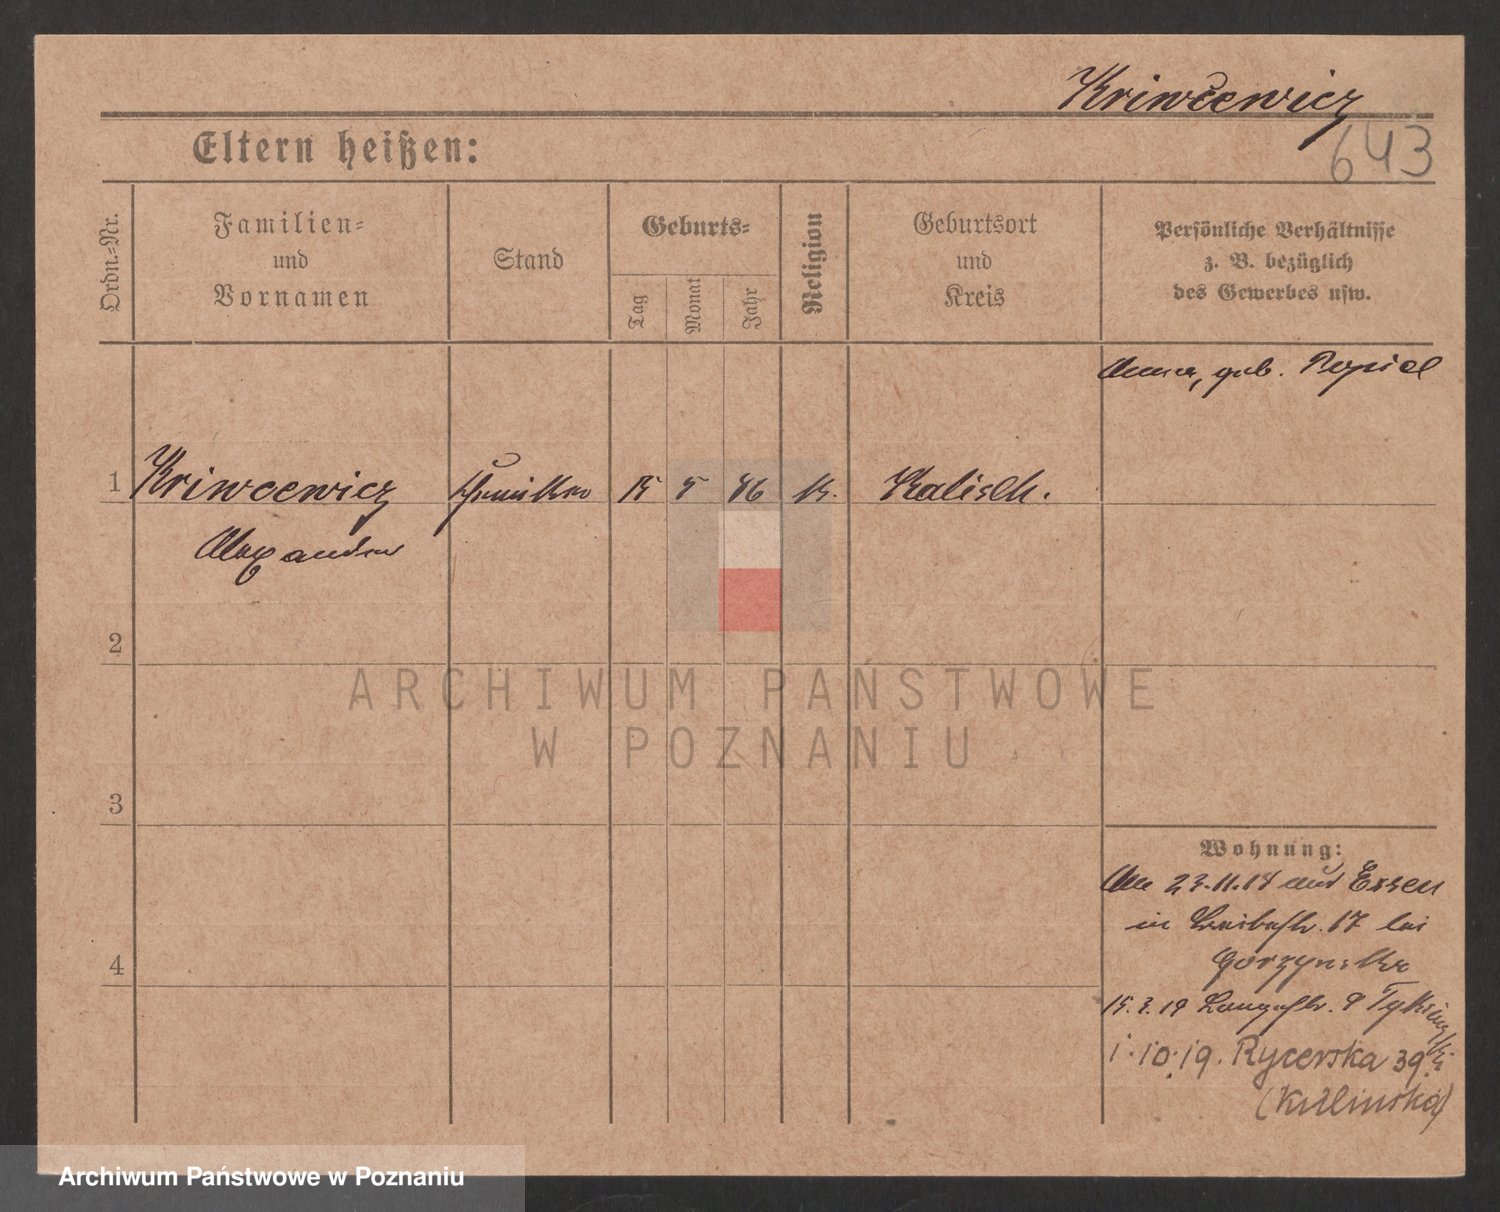 Kriwcewicz
643
Eltern heißen:
Ordn.=Nr.
Familien=
und
Vornamen
Stand
Geburts=
Tag
Monat
Jahr
Religion
Geburtsort
und
Kreis
Persönliche Verhältnisse
z. B. bezüglich
des Gewerbes usw.
Anna, geb. Popiel
1 Kriwcewicz 15 5 K. Kalisch.
Alexander
2
ARCHIWUM PAŃSTWOWE
W POZNANIU
3
Wohnung:
23.11.18 aus Essen
in 17 bei
Gorzynska
15.3.19
4
1.10.19. Rycerska 39.
Archiwum Państwowe w Poznaniu